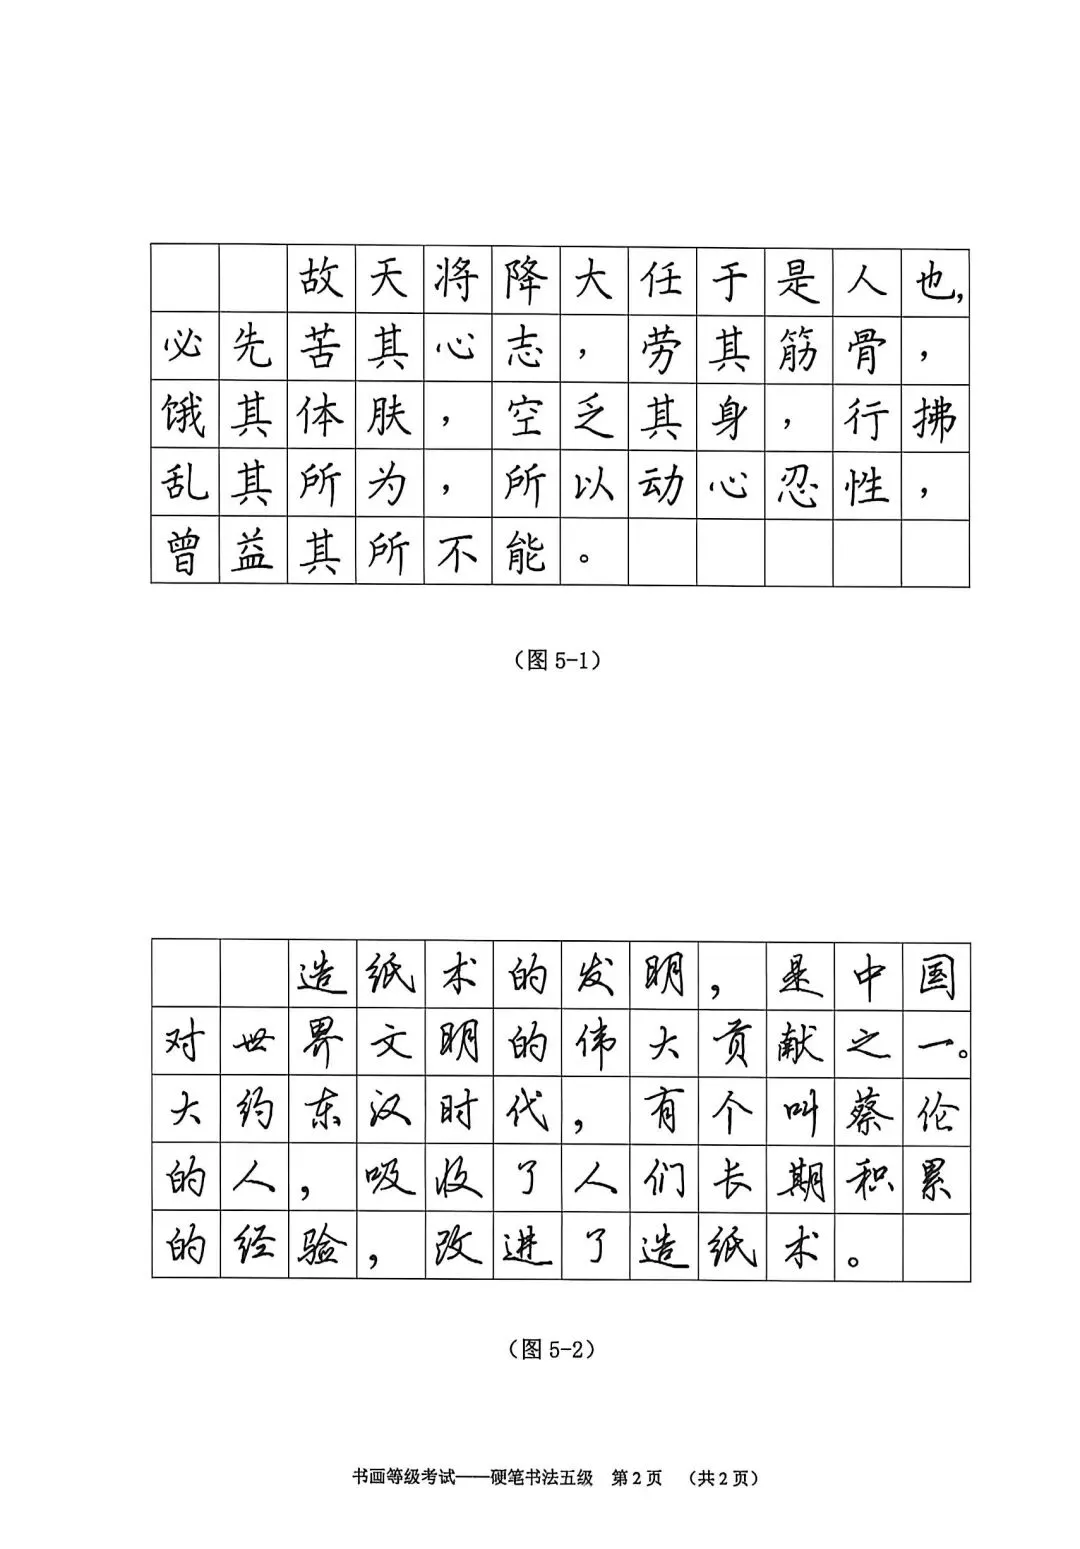 故天将降大任于是人也,
必先苦其心志，劳其筋骨，
饿其体肤，空乏其身，行拂
乱其所为，所以动心忍性，
曾益其所不能。
（图 5-1）
造纸术的发明，是中国
对世界文明的伟大贡献之一。
大约东汉时代，有个叫蔡伦
的人，吸收了人们长期积累
的经验，改进了造纸术。
（图 5-2）
书画等级考试——硬笔书法五级 第 2 页 （共 2 页）